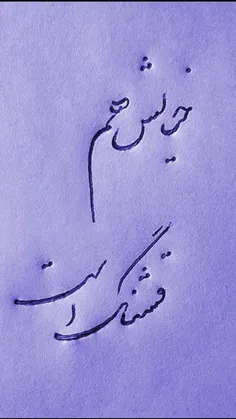 خیالش هم
قشنگ است